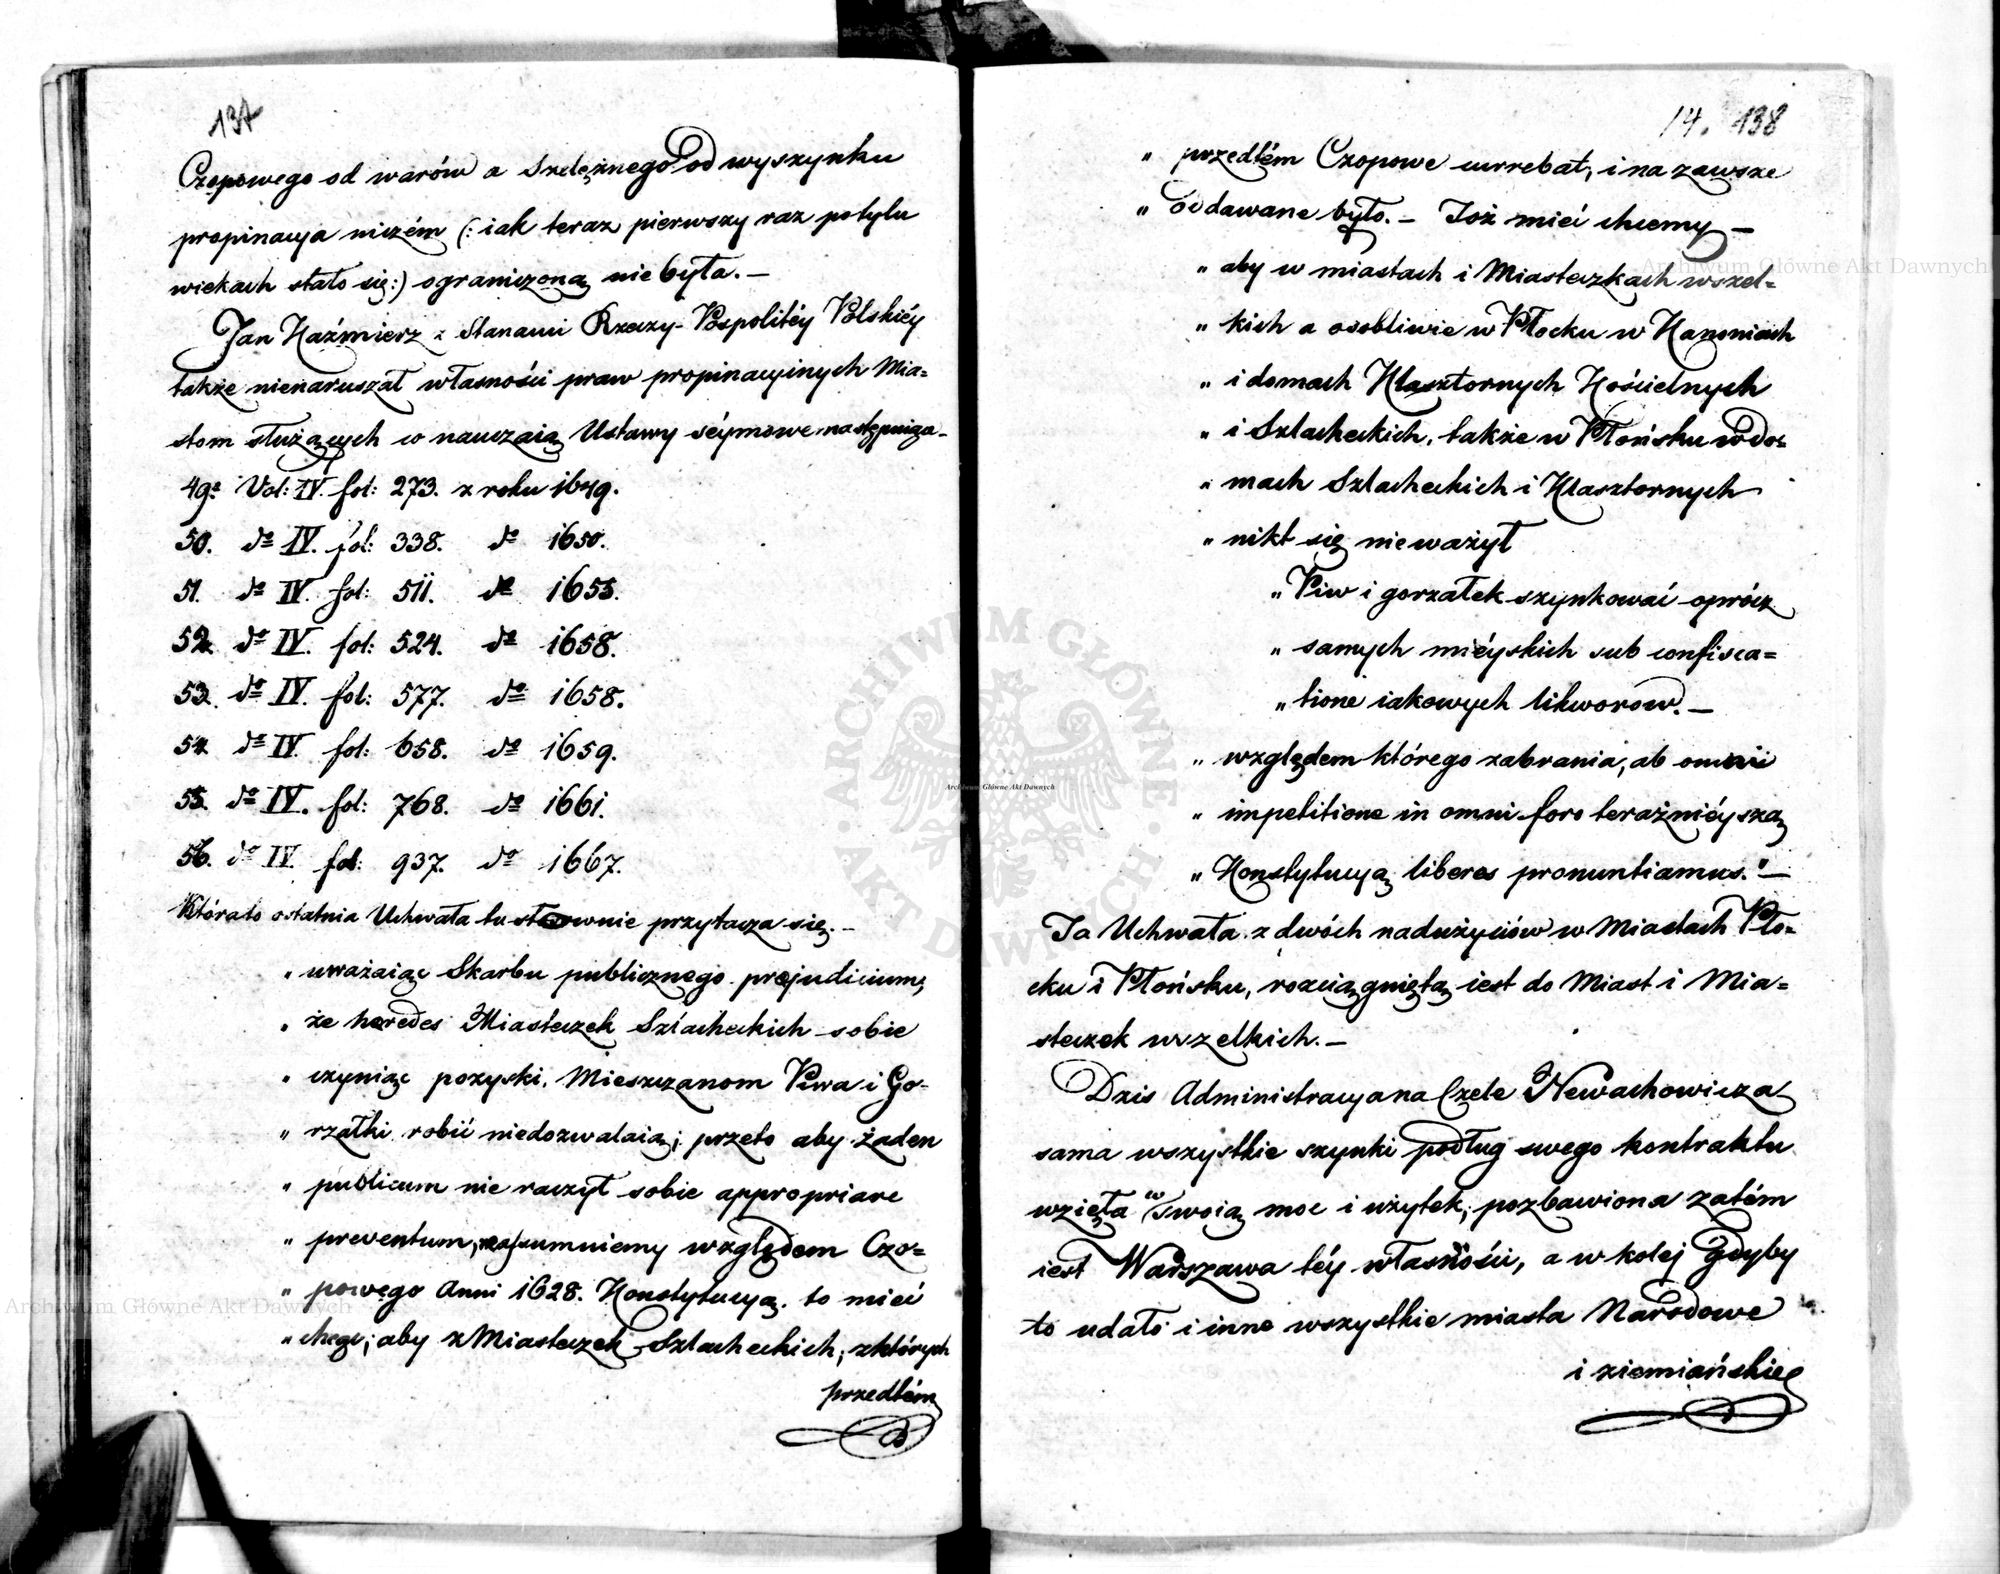 137
Czopowego od warów a Szelężnego od wyszynku
propinacya niczém (: iak teraz pierwszy raz po tylu
wiekach stało się :) ograniczoną nie była. —
Jan Kaźmierz z Stanami Rzeczy-Pospolitéy Polskiéy
także nienaruszał własności praw propinacyinych Mia=
stom służących co nauczaią Ustawy séymowe następuiąc-
49. Vol: IV. fol: 273. z roku 1649.
50. do IV. fol: 338. do 1650.
51. do IV. fol: 511. do 1655.
52. do IV. fol: 524. do 1658.
53. do IV. fol: 577. do 1658.
54. do IV. fol: 658. do 1659.
55. do IV. fol: 768. do 1661.
56. do IV. fol: 937. do 1667.
Którato ostatnia Uchwała tu stownie przytacza się. —
„ uważaiąc Skarbu publicznego prejudicium,
„ że heredes Miasteczek Szlacheckich sobie
„ czyniąc pozyski, Mieszczanom Piwa i Go-
„ rzałki robić niedozwalaią; przeto aby żaden
„ publicum nie raczył sobie appropriare
„ preventum, reassumuiemy względem Czo=
„ powego Anni 1628. Konstytucyą. to mieć
„ chcąc; aby z Miasteczek Szlacheckich, z których
przedtém
14. 138
„ przedtém Czopowe currebat, i na zawsze
„ oddawane było. — Toż mieć chcemy —
„ aby w miastach i Miasteczkach wszel=
„ kich a osobliwie w Płocku w Kanoniach
„ i domach Klasztornych Kościelnych
„ i Szlacheckich, także w Płońsku w do=
„ mach Szlacheckich i Klasztornych
„ nikt się nieważył
„ Piw i gorzałek szynkować oprócz
„ samych miéyskich sub confisca=
„ tione iakowych likworow. —
„ względem którego zabrania, ab omni
„ impetitione in omni foro teraźniéyszą
„ Konstytucyą liberos pronuntiamus." —
Ta Uchwała z dwóch nadużyciów w Miastach Pło-
cku i Płońsku, rozciągniętą iest do Miast i Mia=
steczek wszelkich. —
Dziś Administracya na Czele Newachowicza
sama wszystkie szynki podług swego kontraktu
wzięła w swoią moc i użytek, pozbawiona zatém
iest Warszawa téy własności, a w koléj gdyby
to udało i inne wszystkie miasta Narodowe
i ziemiańskie
Archiwum Główne Akt Dawnych
Archiwum Główne Akt Dawnych
Archiwum Główne Akt Dawnych
ARCHIWUM GŁÓWNE AKT DAWNYCH